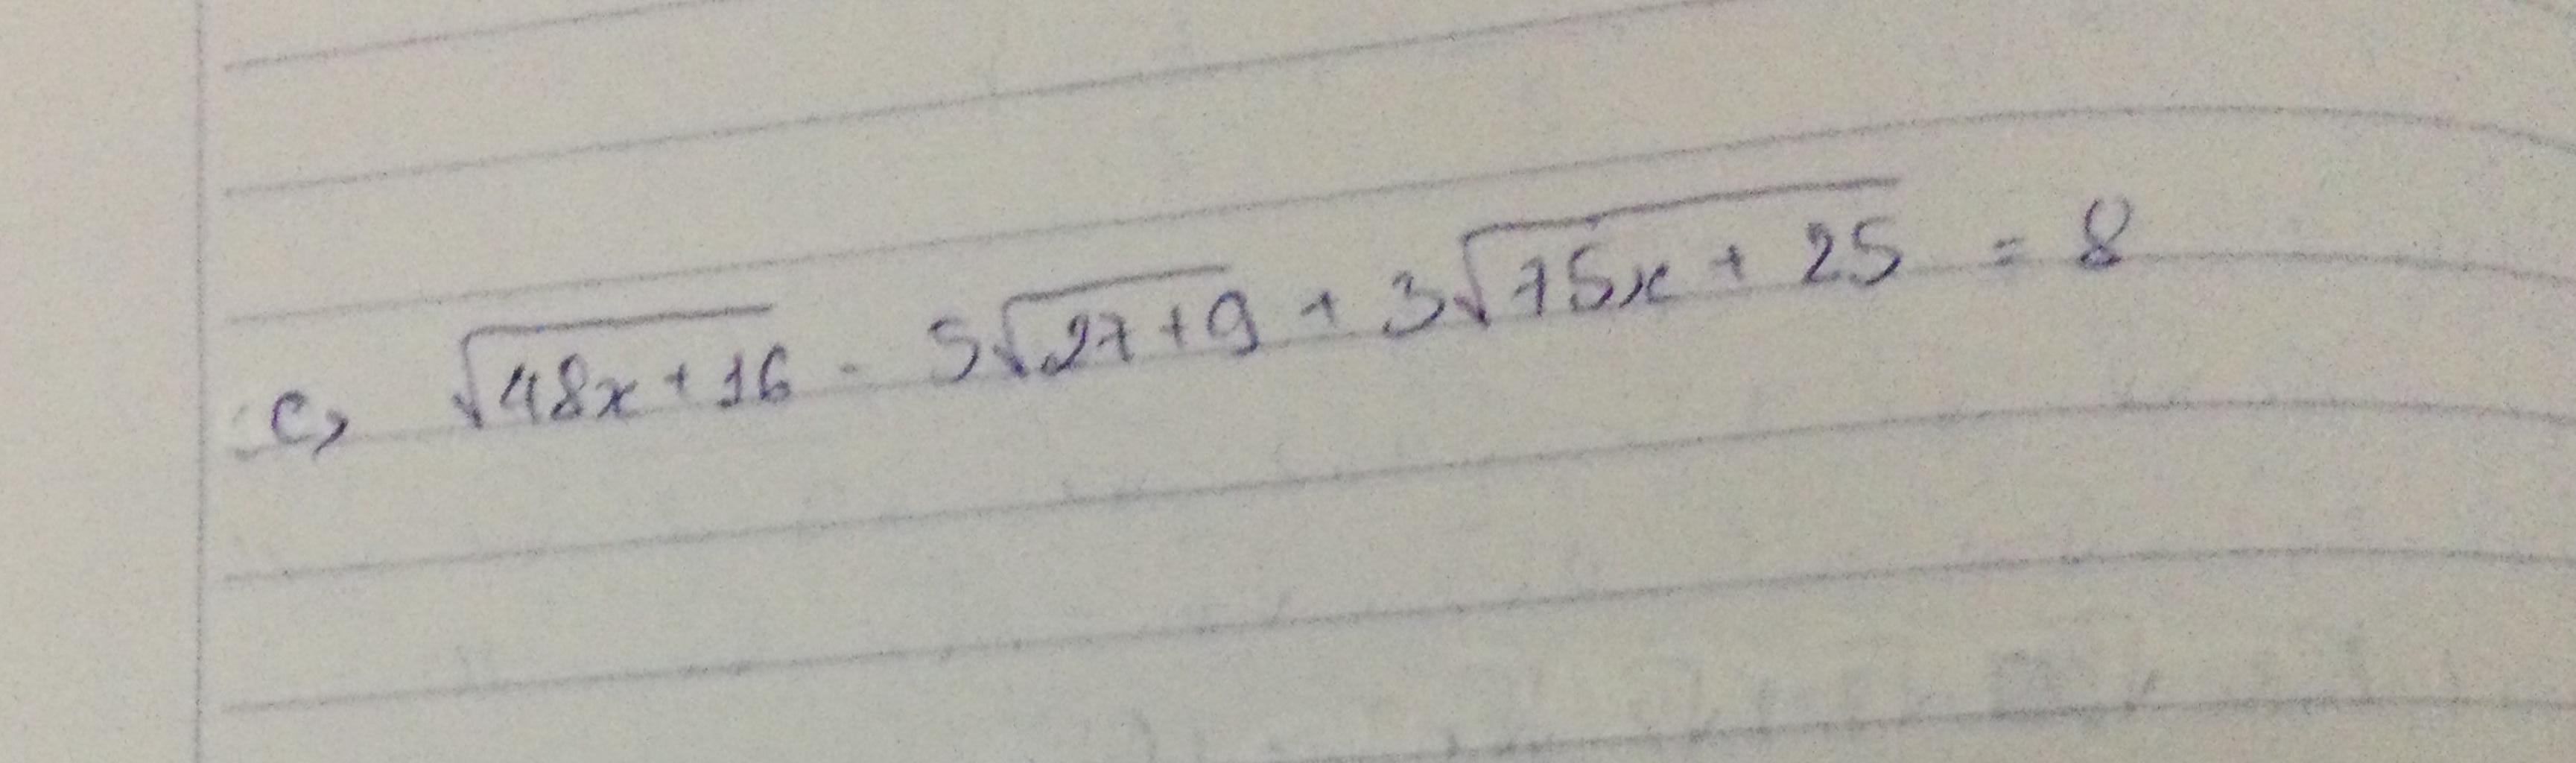 c, √(48x + 16) - 5√(27 + 9) + 3√(75x + 25) = 8